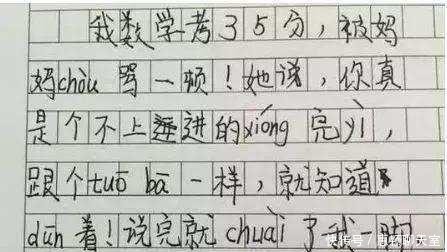 我数学考35分，被妈
妈chòu 骂一顿！她说，你真
是个不上进的xióng 完yì，
跟个tuō bā一样，就知道
dūn着！说完就chuài了我一脚
快传号 / 电死聊天室